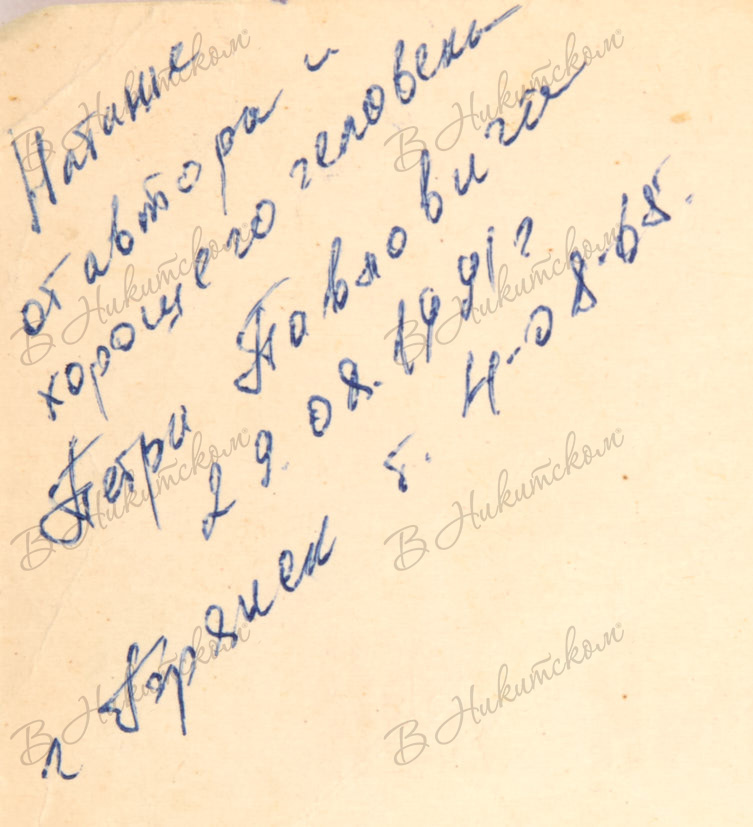 Наташе
от автора и
хорошего человека
Петра Павловича
29.08.1991 г
т. 4-08-65.
г Брянск
В Никитском
В Никитском
В Никитском
В Никитском
В Никитском
В Никитском
В Никитском
В Никитском